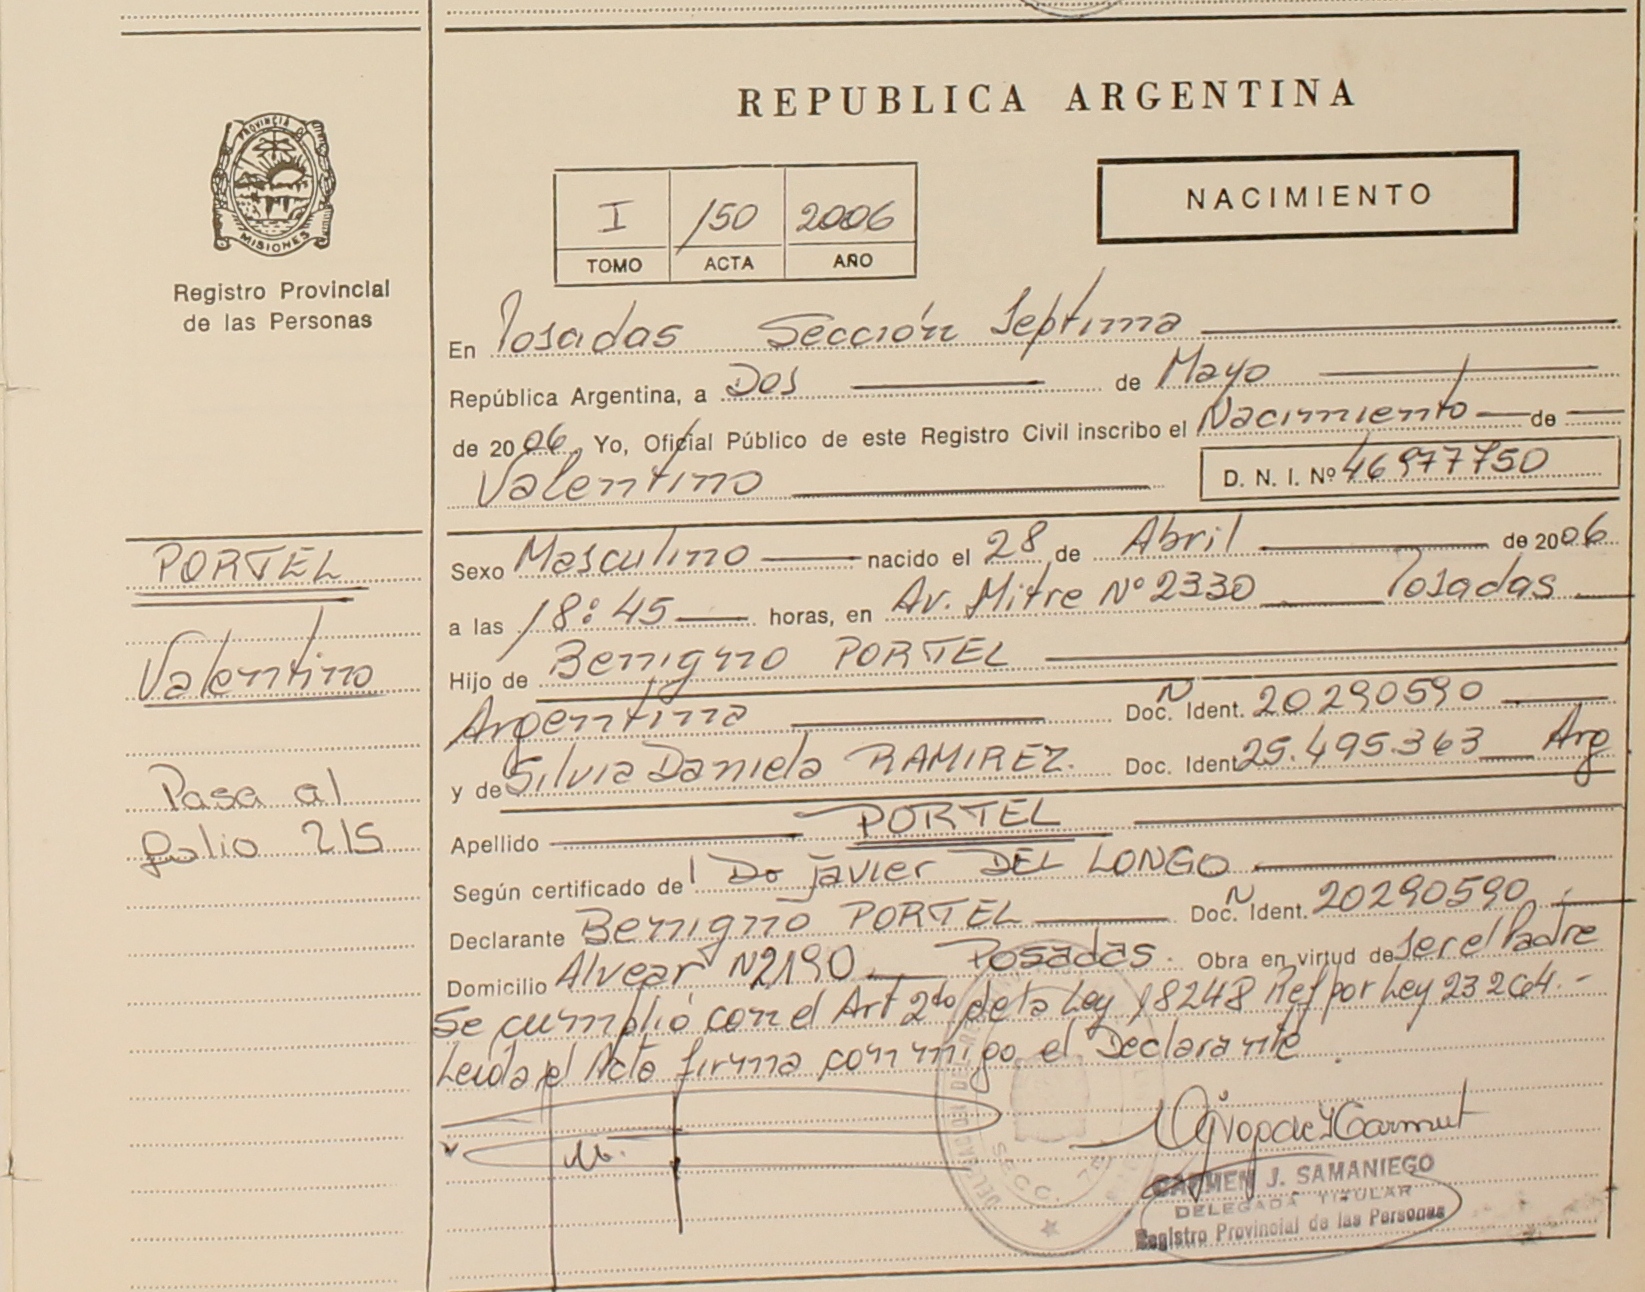 REPUBLICA ARGENTINA
PROVINCIA DE
MISIONES
Registro Provincial
de las Personas
I 150 2006
TOMO ACTA AÑO
NACIMIENTO
En Posadas Sección Septima
República Argentina, a Dos de Mayo
de 2006 Yo, Oficial Público de este Registro Civil inscribo el Nacimiento de
Valentino D. N. I. Nº 46977750
PORTEL
Valentino
Pasa al
folio 215
Sexo Masculino nacido el 28 de Abril de 2006
a las 18:45 horas, en Av. Mitre Nº 2330 Posadas
Hijo de Benigno PORTEL
Argentina Doc. N Ident. 20290590
y de Silvia Daniela RAMIREZ. Doc. Ident 25.495.363 Arg
Apellido PORTEL
Según certificado de Do Javier DEL LONGO
Declarante Benigno PORTEL Doc. N Ident. 20290590
Domicilio Alvear N2190 Posadas. Obra en virtud de ser el Padre
Se cumplió con el Art 2do de la Ley 18248 Ref por Ley 23264.-
Leída el Acta firma conmigo el Declarante.
SECC. 7a
CARMEN J. SAMANIEGO
DELEGADA TITULAR
Registro Provincial de las Personas